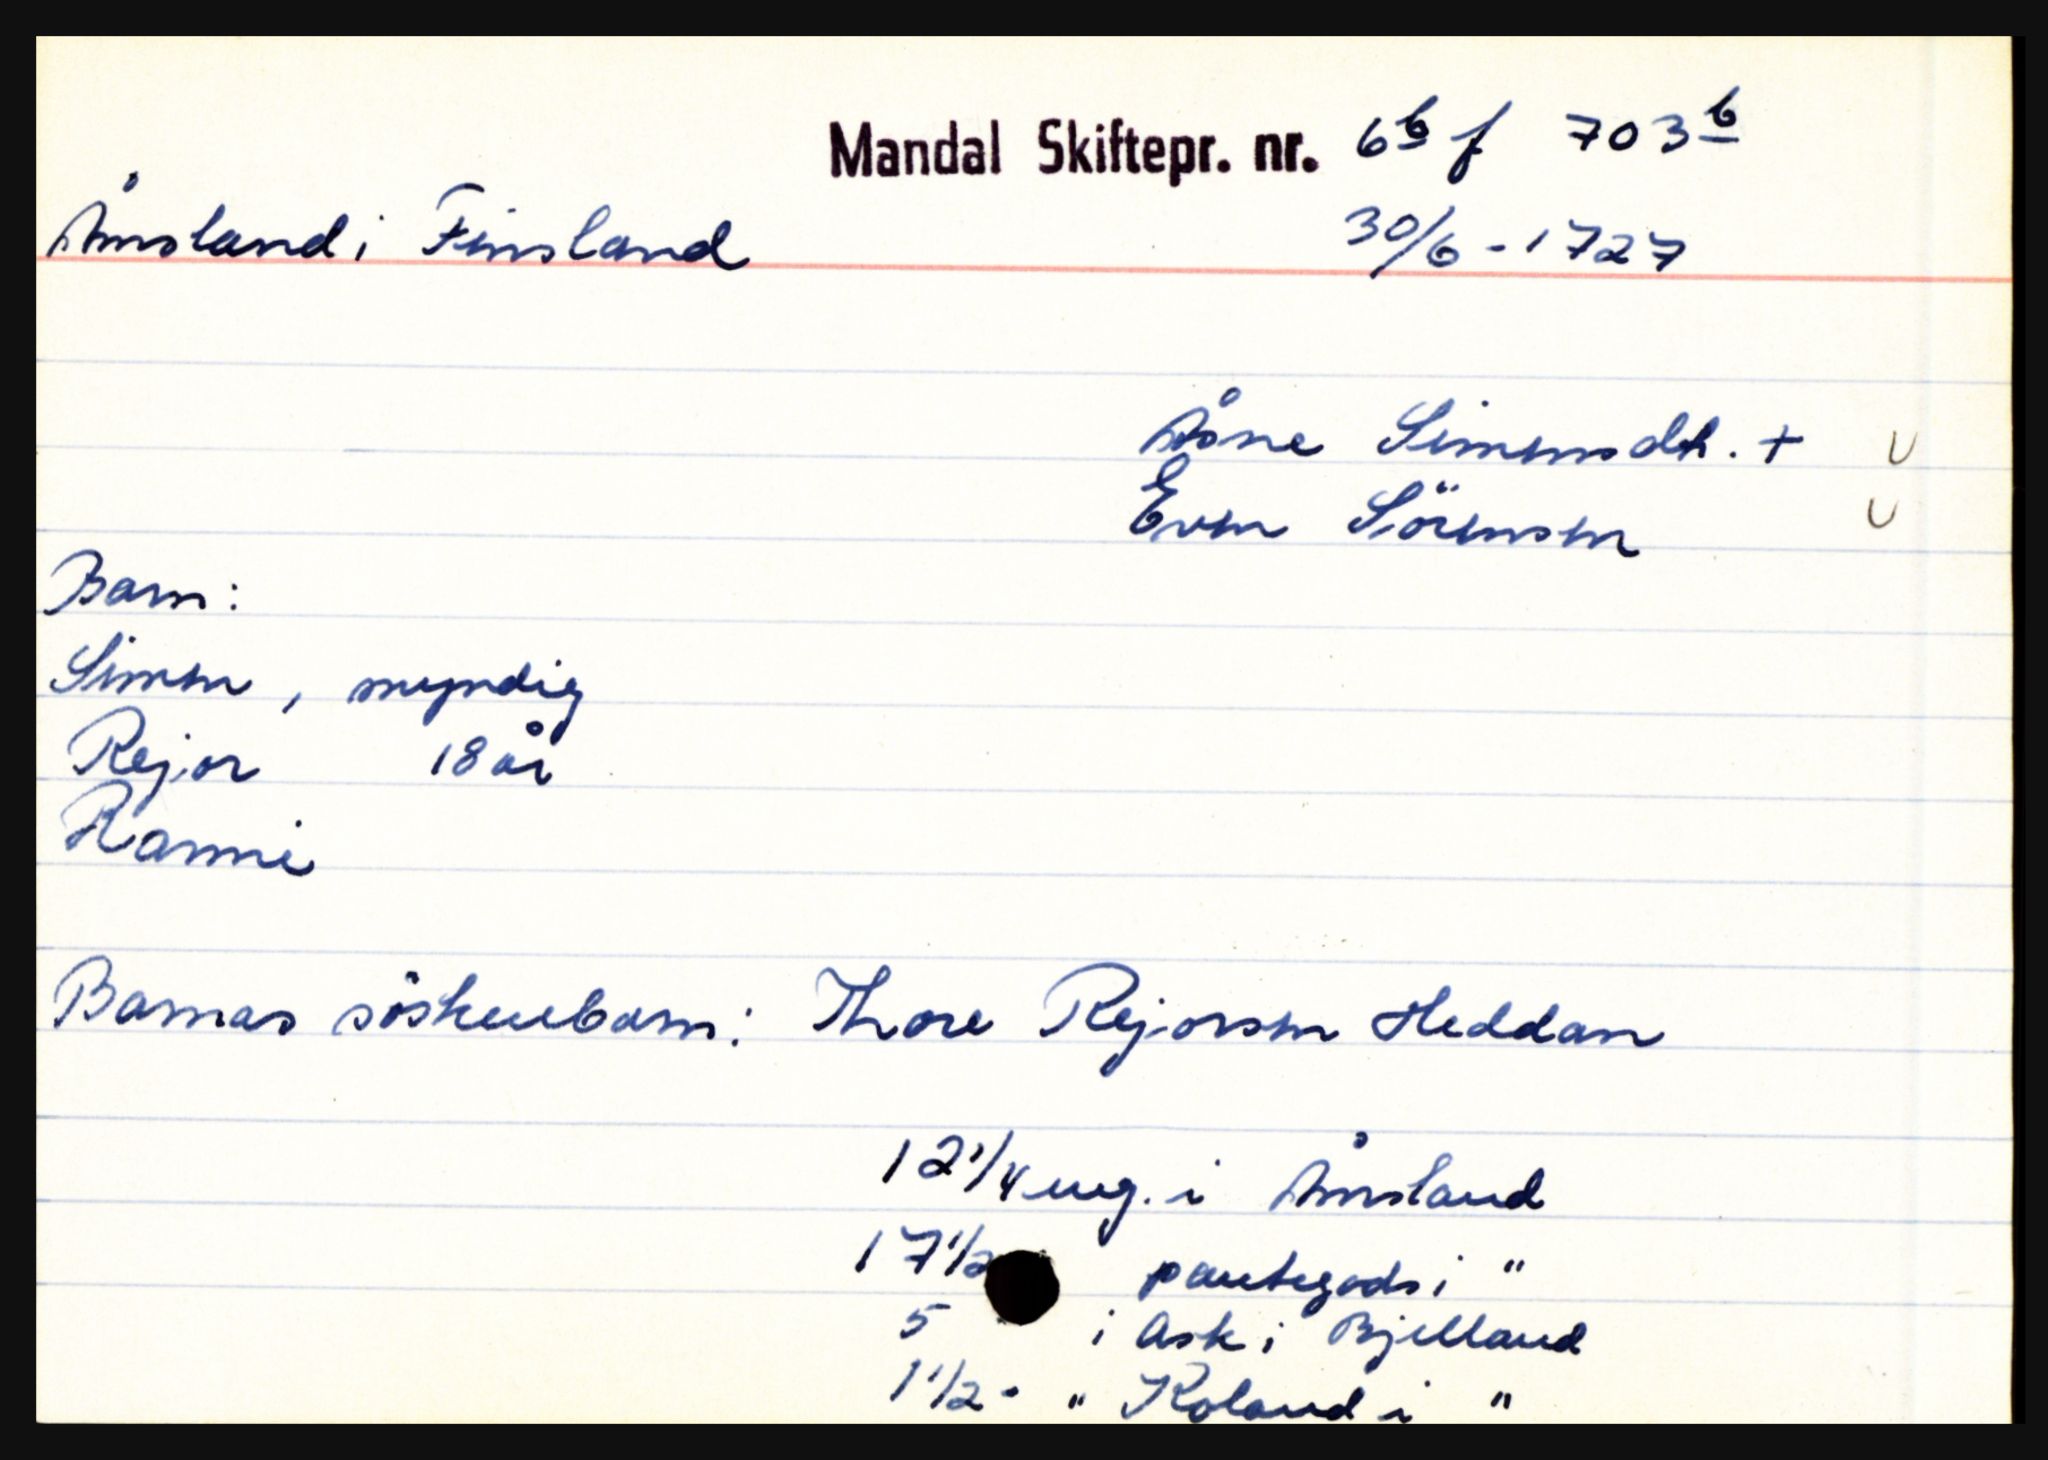 Mandal Skiftepr. nr. 6b f 703b
Åmsland i Finsland 30/6-1727
Åsne Simensdtr. + U
Even Sörensen U
Barn:
Simen, myndig
Rejor 18 år
Ranni
Barnas söskenbarn: Thore Rejorsen Heddan
12 1/4 eng. i Åmsland
17 1/2 pantegods i "
5 i Ask i Bjelland
1 1/2 - " Roland i "